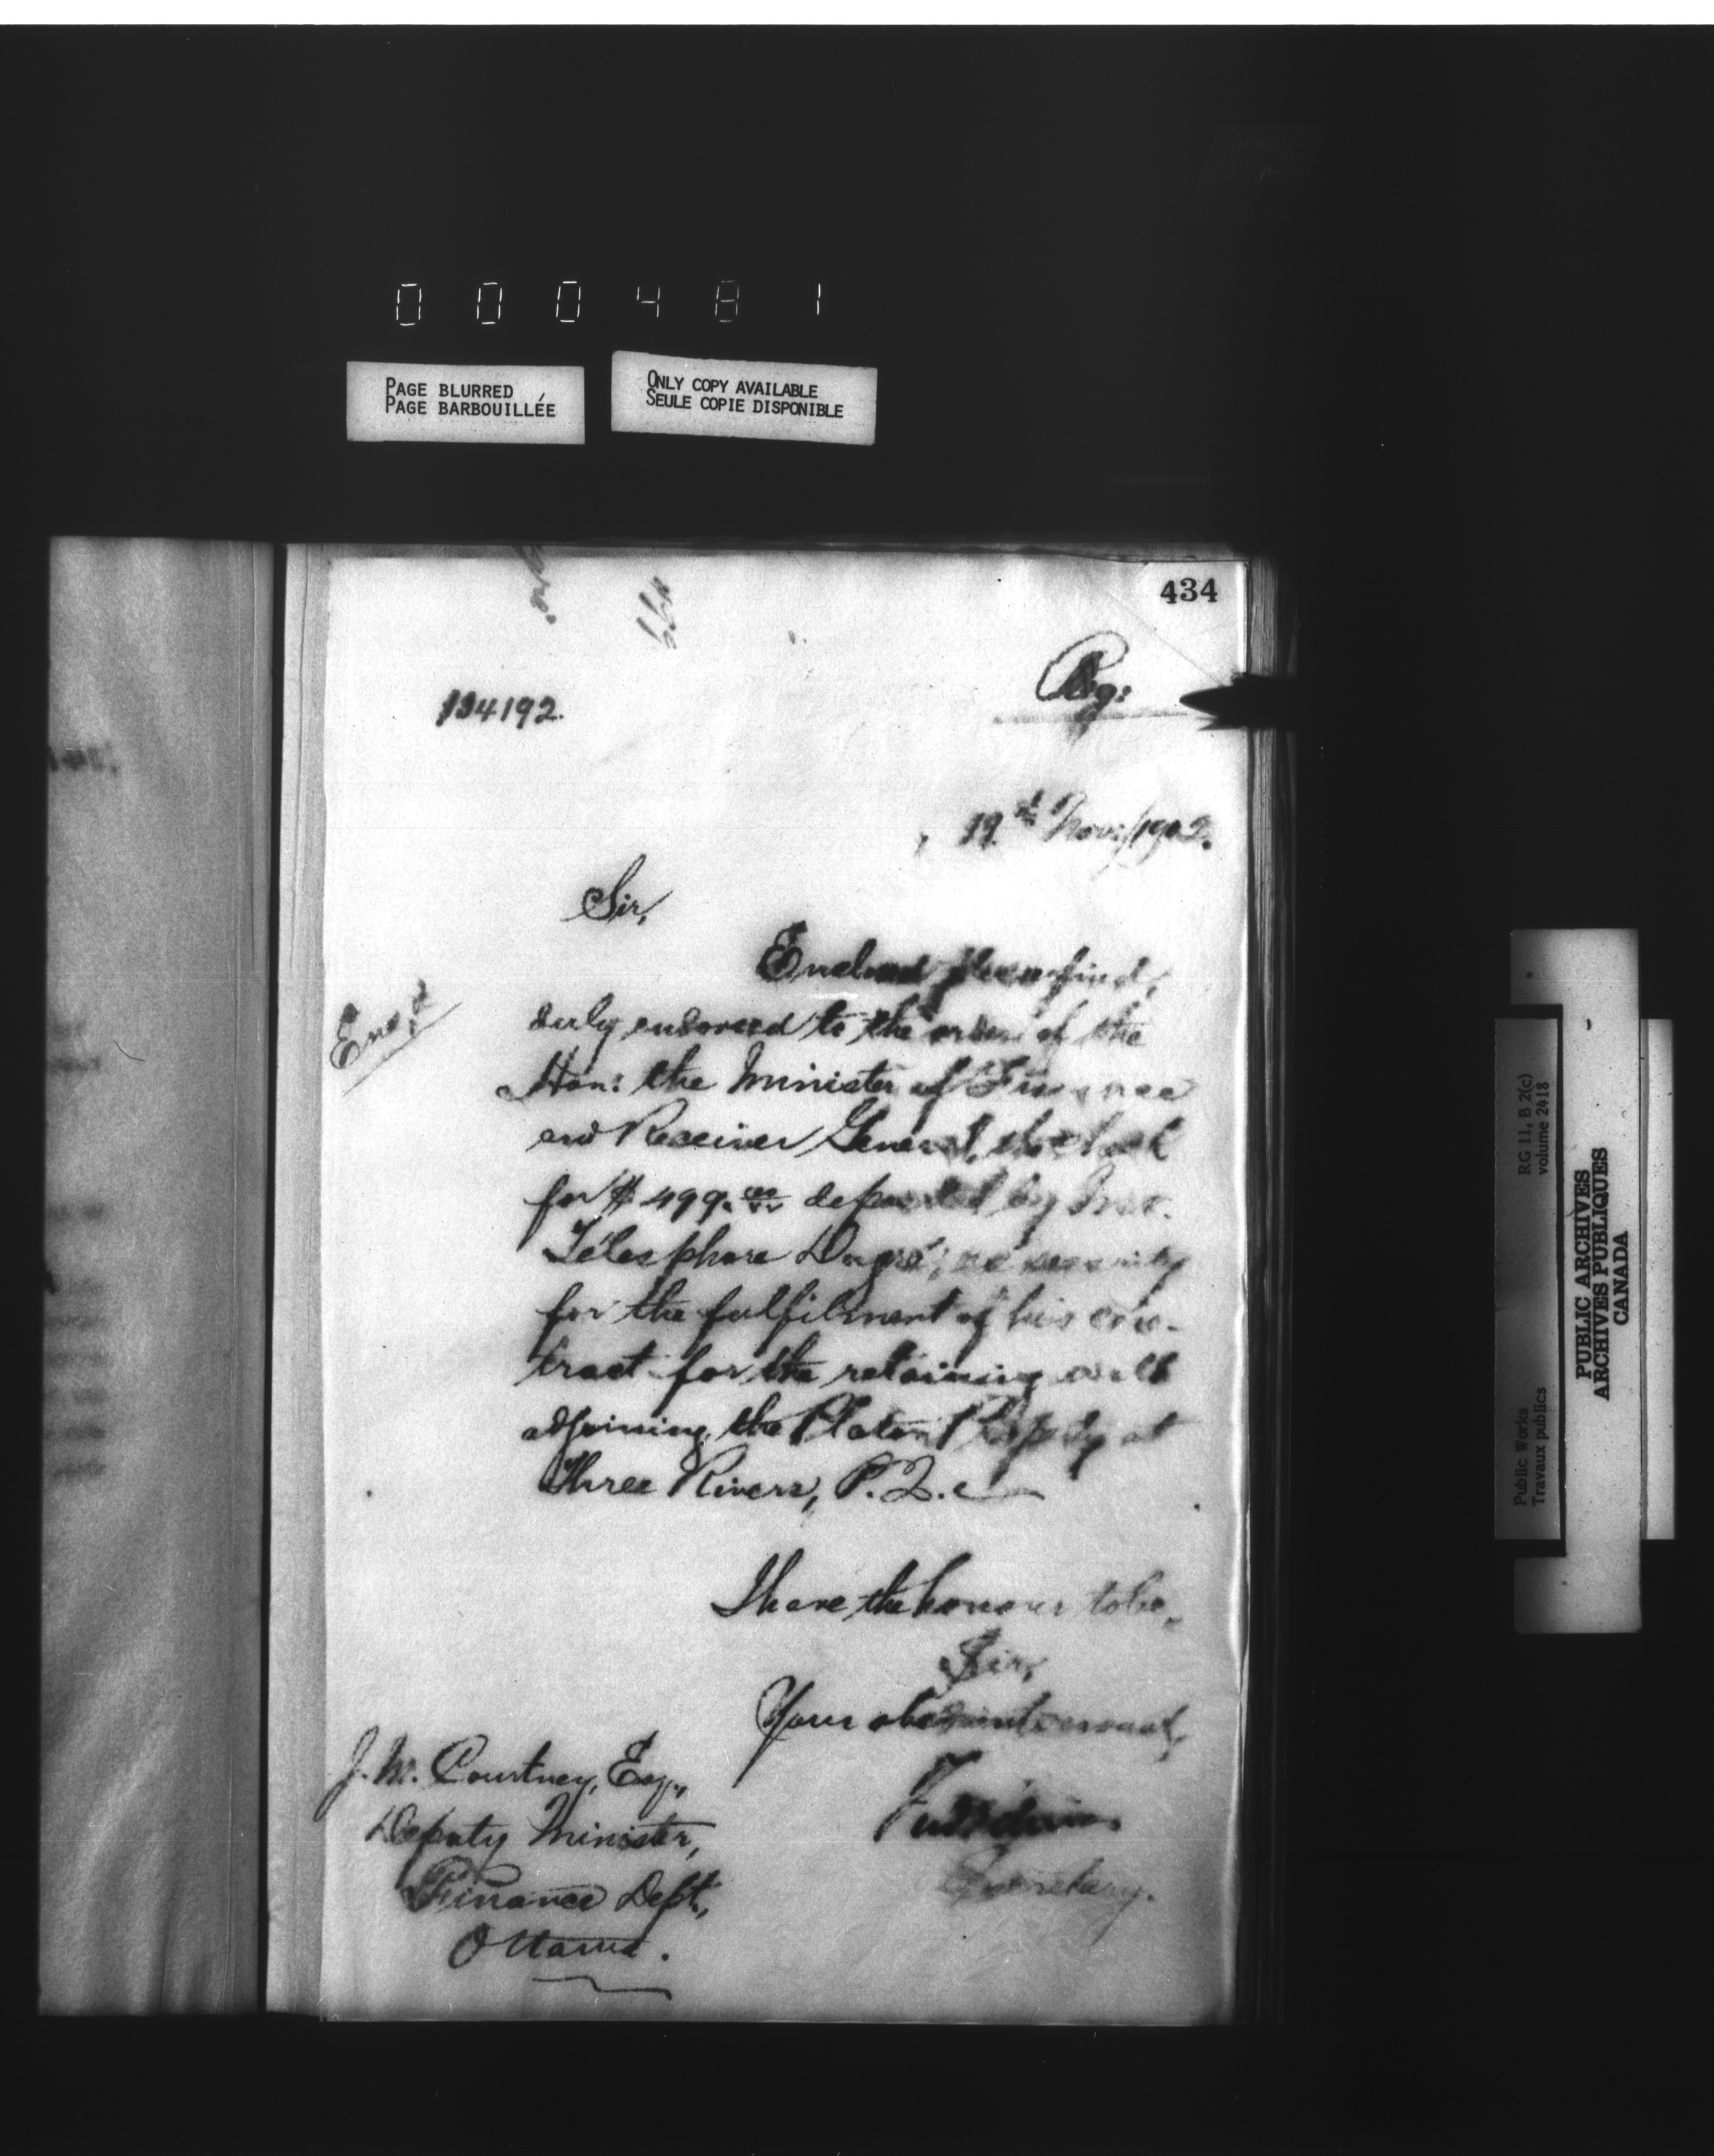 000481
PAGE BLURRED
PAGE BARBOUILLÉE
ONLY COPY AVAILABLE
SEULE COPIE DISPONIBLE
434
Reg:
134192.
19th Nov:/1902.
Sir,
Enclosed please find,
Enc,d
duly endorsed to the order of the
Hon: the Minister of Finance
and Receiver General, the check
for $499.00 deposited by Mr.
Télesphore Dugré, as security
for the fulfilment of his con-
tract for the retaining wall
adjoining the Platon Property at
Three Rivers, P.Q.
I have the honour to be,
Sir,
Your obedient servant,
Secretary.
J. M. Courtney, Esq.,
Deputy Minister,
Finance Dept.,
Ottawa.
Public Works
Travaux publics
RG 11, B 2(c)
volume 2418
PUBLIC ARCHIVES
ARCHIVES PUBLIQUES
CANADA